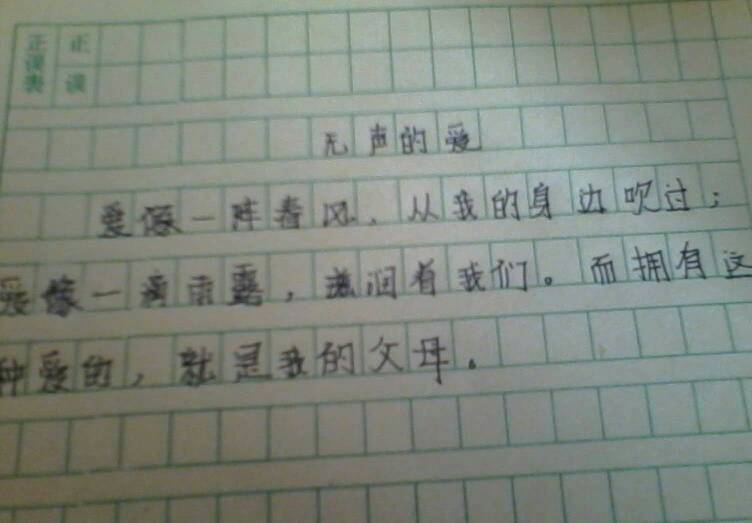 正误表
正
误
无声的爱
爱像一阵春风,从我的身边吹过;
爱像一滴雨露,滋润着我们。而拥有这
种爱的,就是我的父母。